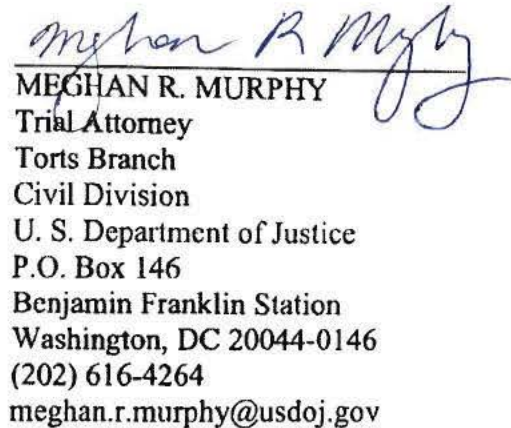 Meghan R Murphy
MEGHAN R. MURPHY
Trial Attorney
Torts Branch
Civil Division
U. S. Department of Justice
P.O. Box 146
Benjamin Franklin Station
Washington, DC 20044-0146
(202) 616-4264
meghan.r.murphy@usdoj.gov